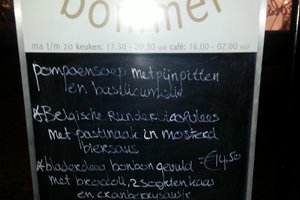 bommel
ma t/m zo keuken: 17.30 - 20.30 uur café: 16.00 - 02.00 uur
pompoensoep met pijnpitten
en basilicumolie
* Belgische Runderstoofvlees
met pastinaak in mosterd
biersaus
* bladerdeeg bonbon gevuld = €14.50
met broccoli, 2 soorten kaas
en cranberrysausje